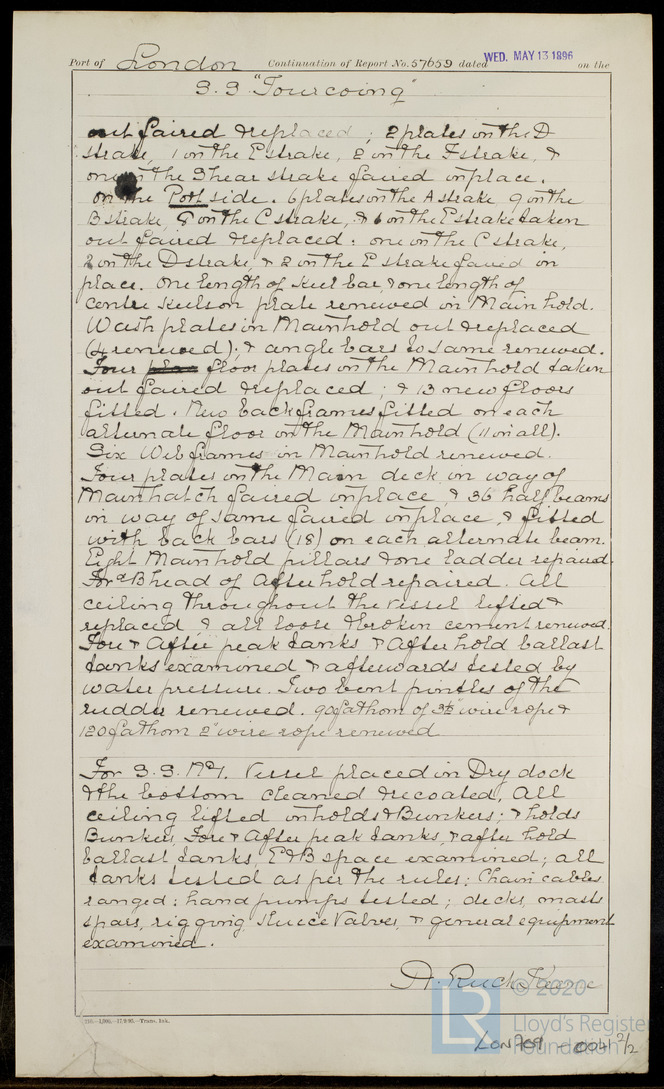 Port of London Continuation of Report No. 57659 dated WED. MAY 13 1896 on the
S.S "Tourcoing"
out faired & replaced ; 2 plates on the D
strake, 1 on the E strake, 2 on the F strake, &
one in the Shear strake faired in place.
on the Port side. 6 plates on the A strake 9 on the
B strake, 8 on the C strake, & 6 on the E strake taken
out faired & replaced : one on the C strake,
2 on the D strake, & 2 on the E strake faired in
place. One length of keel bar, & one length of
centre keelson plate renewed in Main hold.
Wash plates in Mainhold out & replaced
(4 renewed); & angle bars to same renewed.
Four floor plates on the Mainhold taken
out faired & replaced ; & 13 new floors
fitted. New back frames fitted on each
alternate floor in the Mainhold (11 in all).
Six Web frames in Mainhold renewed.
Four plates on the Main deck in way of
Mainhatch faired in place, & 36 half beams
in way of same faired in place, & fitted
with back bars (18) on each alternate beam.
Eight Mainhold pillars & one ladder repaired.
For'd B head of After hold repaired. All
ceiling throughout the vessel lifted &
replaced & all loose & broken cement renewed.
Fore & After peak tanks & After hold ballast
tanks examined & afterwards tested by
water pressure. Two bent pintles of the
rudder renewed. 90 fathom of 3½" wire rope &
120 fathom 2" wire rope renewed
For S.S. No 1. Vessel placed in Dry dock
& the bottom cleaned & recoated, All
ceiling lifted in holds & Bunkers; & holds
Bunkers, Fore & After peak tanks, & after hold
ballast tanks, E & B space examined; all
tanks tested as per the rules; Chain cables
ranged; hand pumps tested; decks, masts
spars, rigging, Sluice Valves, & general equipment
examined.
A. Ruck Keene
© 2020
Lloyd's Register
Foundation
LR
LON709 - 0041 2/2